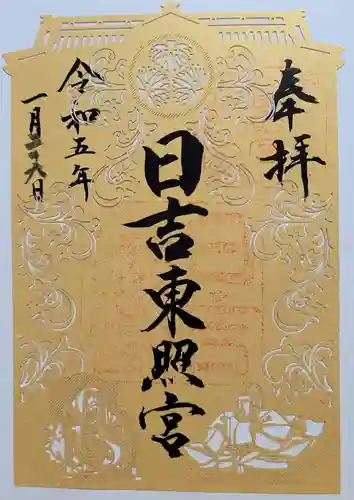 奉拝
日吉東照宮
令和五年
一月二十六日